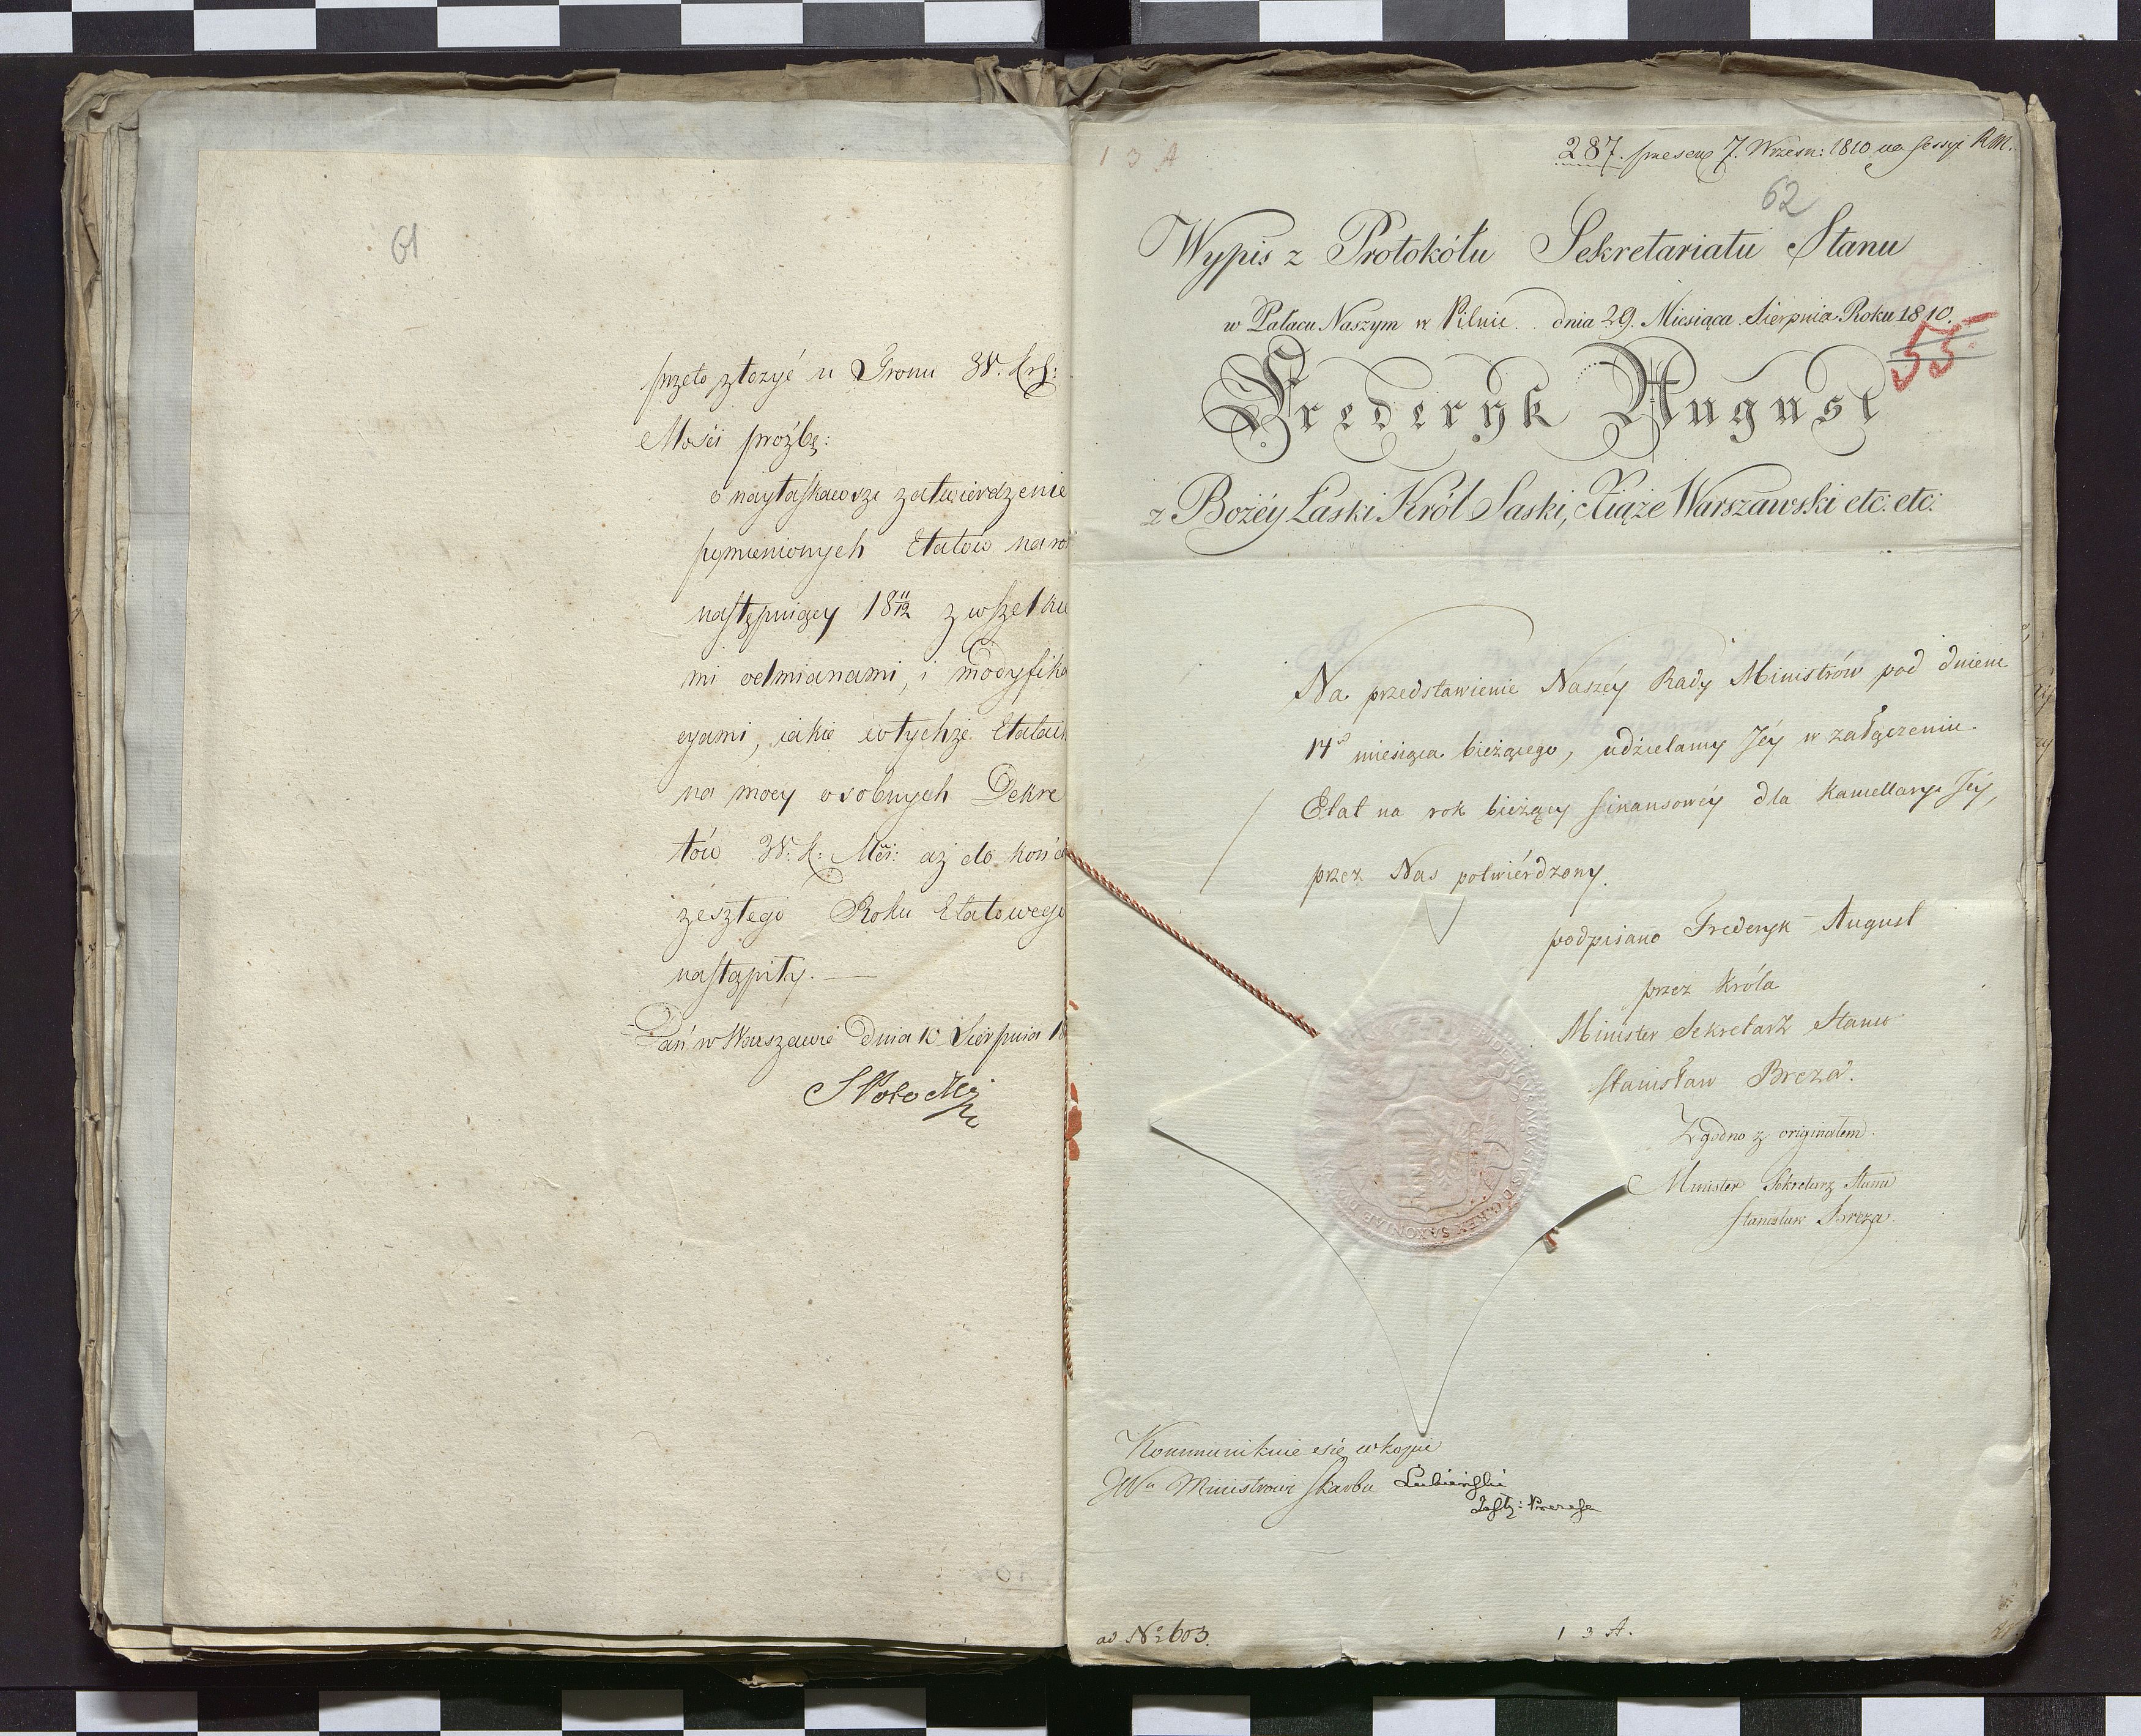 61
przeto złożyć u Tronu W. Krl:
Mości proźbę:
o nayłaskawsze zatwierdzenie
pomienionych Etatów na ro
następuiący 18 11/12 z wszelkie
mi odmianami, i modyfika
cyami, iakie w tychże Etatach
na mocy osobnych Dekre
tów W. K: Mci: aż do końca
zeszłego Roku Etatowego
nastąpiły. —
Dań w Warszawie Dnia 10 Sierpnia 18
S Potocki
1 3 A
287. praesent 7. Wrześn: 1810 na sessyi RM.
62
Wypis z Protokółu Sekretariatu Stanu
w Pałacu Naszym w Pilnic. dnia 29. Miesiąca Sierpnia Roku 1810.
55
Fryderyk August
z Bożéy Łaski Król Saski, Xiąże Warszawski etc: etc:
Na przedstawienie Naszéy Rady Ministrów pod dniem
14º miesiąca bieżącego, udzielamy Jéy w załączeniu
Etat na rok bieżący finansowéy dla Kancellaryi Jéy,
przez Nas potwiérdzony.
podpisano Frederyk August
przez Króla
Minister Sekretarz Stanu
Stanisław Breza.
Zgodno z originałem.
Minister Sekretarz Stanu
Stanisław Breza
AUGUSTUS D.G. REX SAXONIAE
Kommunikuie się w kopii
JWu Ministrowi Skarbu Łubieński
Zastę: Prezesa
ad No 603.
1 3 A.